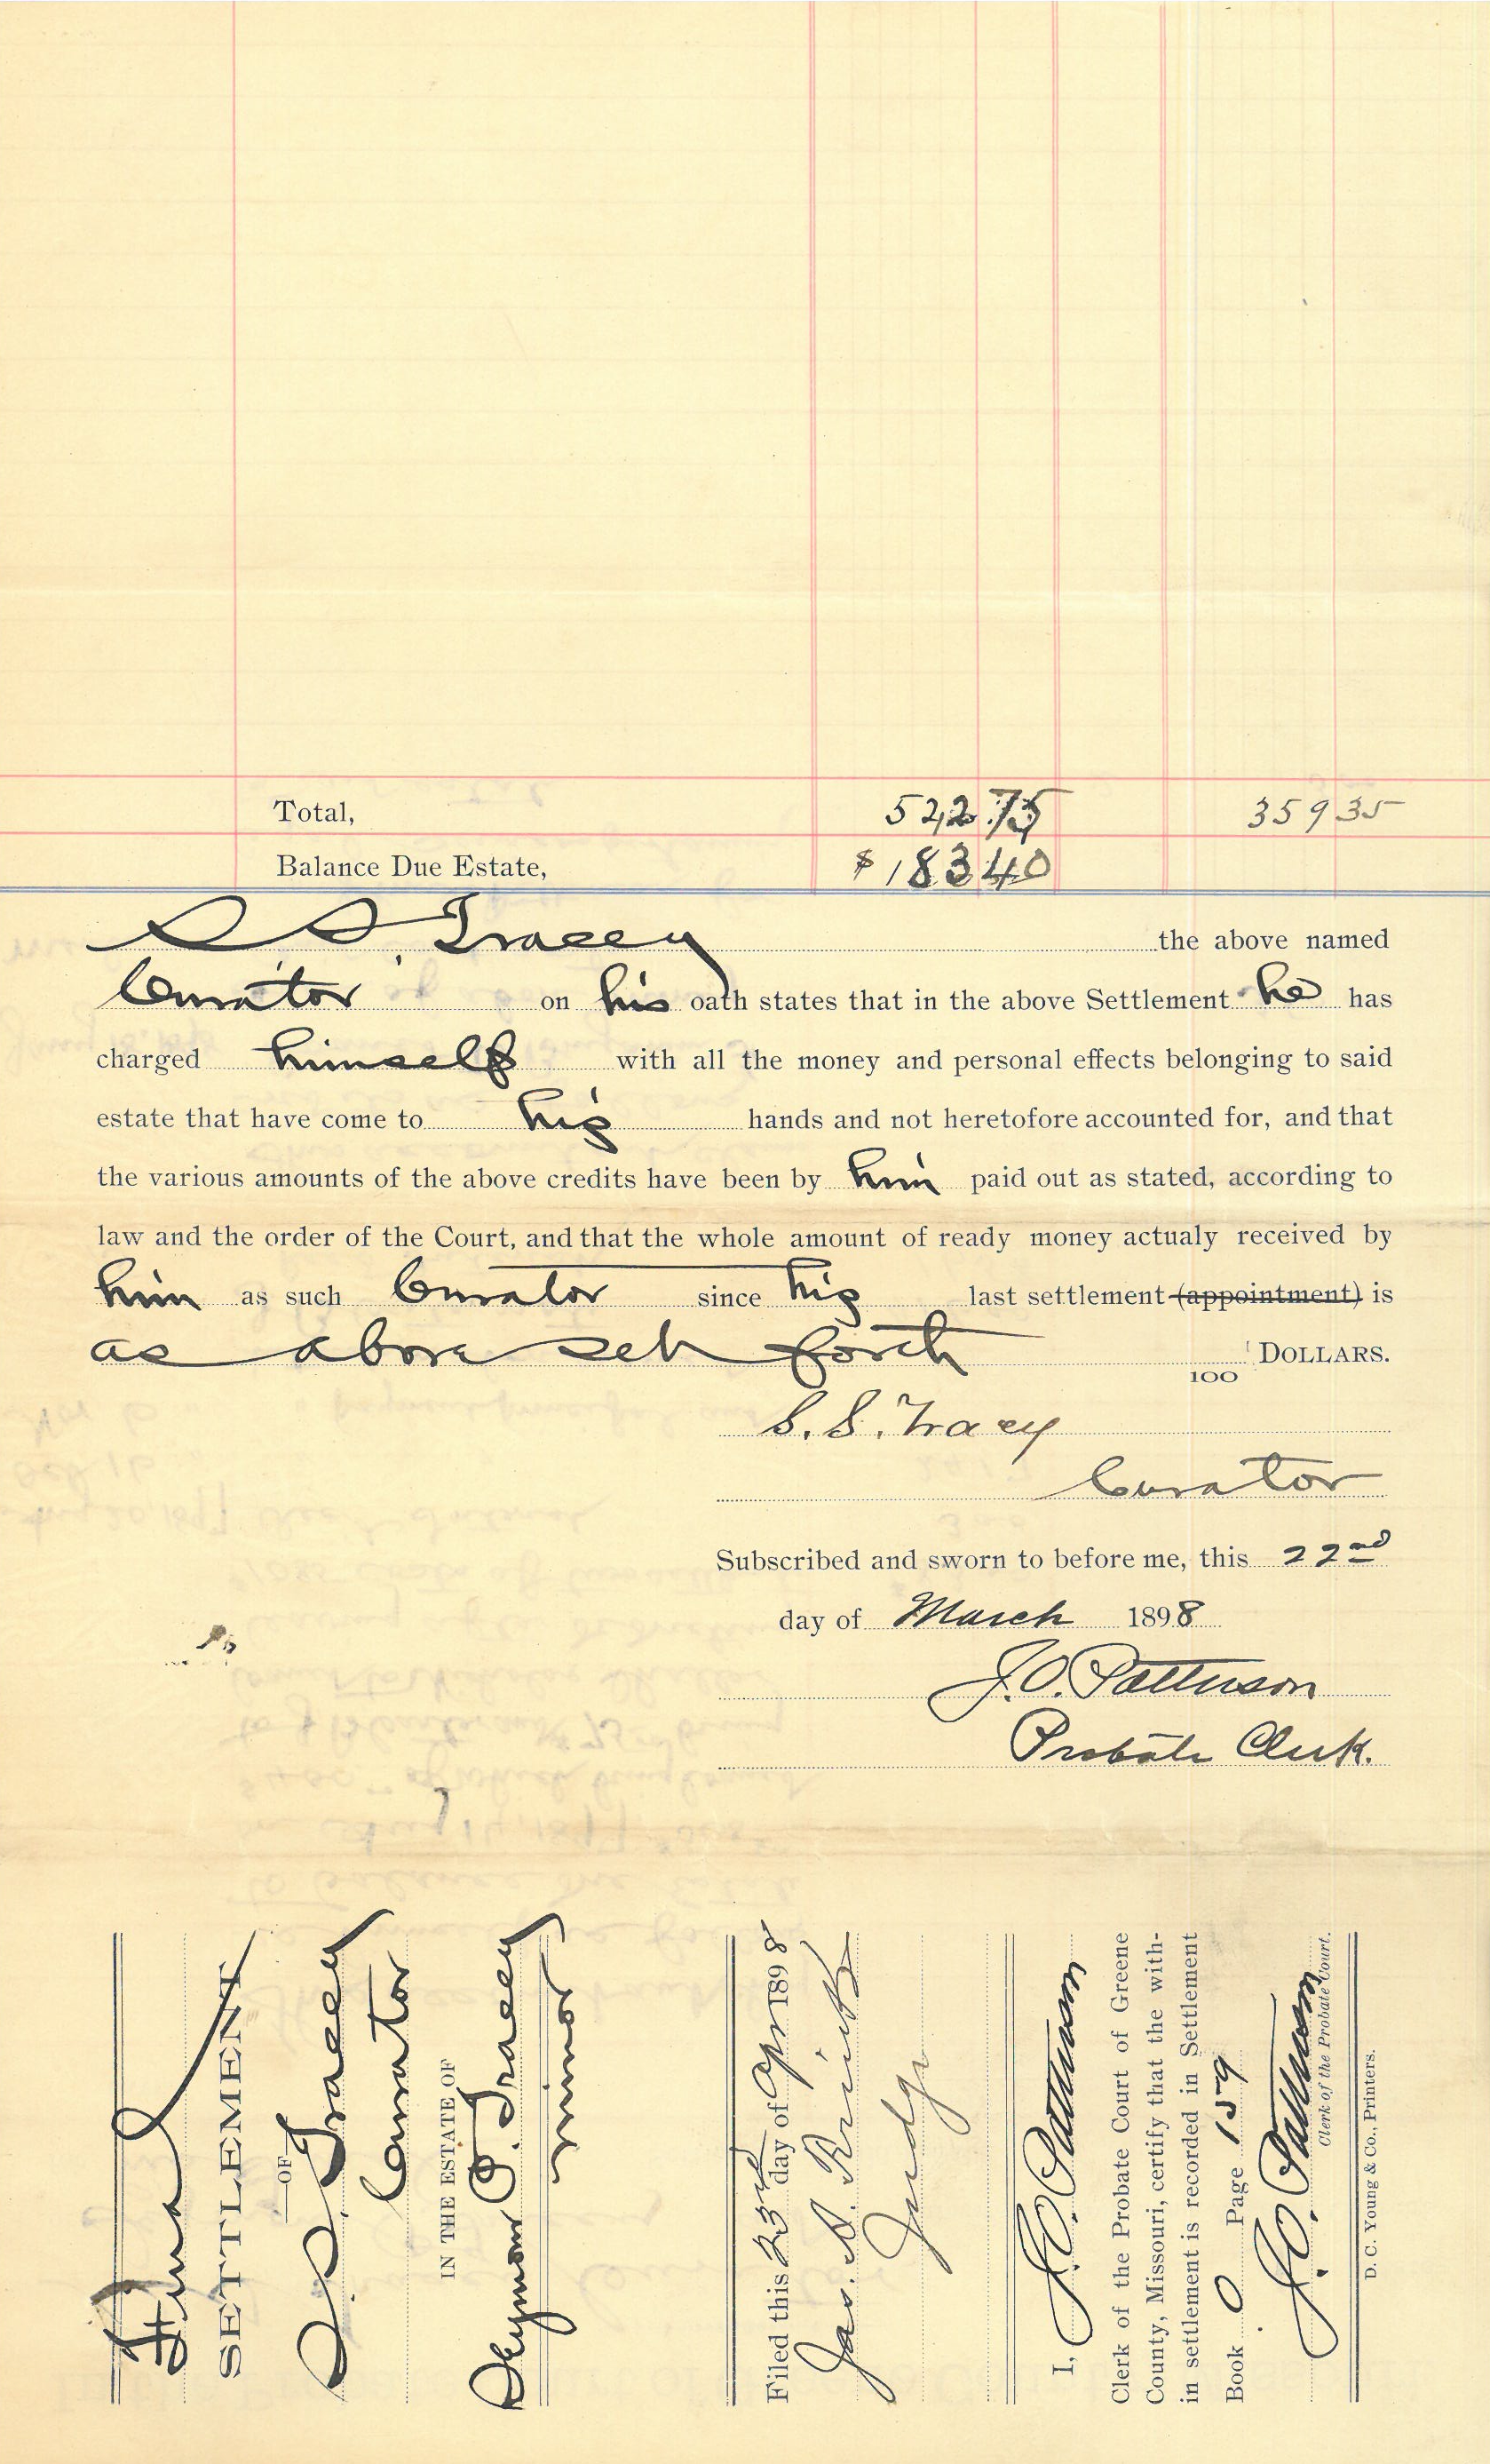 Total, 522 75 359 35
Balance Due Estate, $183 40
S. S. Tracey the above named
Curator on his oath states that in the above Settlement he has
charged himself with all the money and personal effects belonging to said
estate that have come to his hands and not heretofore accounted for, and that
the various amounts of the above credits have been by him paid out as stated, according to
law and the order of the Court, and that the whole amount of ready money actualy received by
him as such Curator since his last settlement (appointment) is
as above set forth /100 DOLLARS.
S. S. Tracey
Curator
Subscribed and sworn to before me, this 22nd
day of March 1898
J. O. Patterson
Probate Clerk.
Final
SETTLEMENT
OF
S S Tracey
Curator
IN THE ESTATE OF
Seymour O. Tracey
minor
Filed this 23rd day of Apr 1898
Jas. A.
Judge
I, J. O. Patterson
Clerk of the Probate Court of Greene
County, Missouri, certify that the with-
in settlement is recorded in Settlement
Book O Page 159
J. O. Patterson
Clerk of the Probate Court.
D. C. Young & Co., Printers.